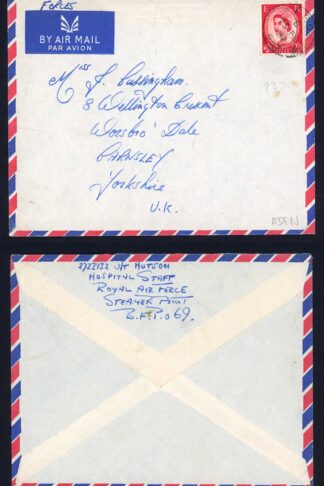 FORCES
BY AIR MAIL
PAR AVION
E R
Miss J. Bullingham.
8 Wellington Crescent
Worsbro' Dale
BARNSLEY
Yorkshire
U.K.
ADEN
HUTSON
HOSPITAL STAFF
ROYAL AIR FORCE
STEAMER POINT
B.F.P.O 69.